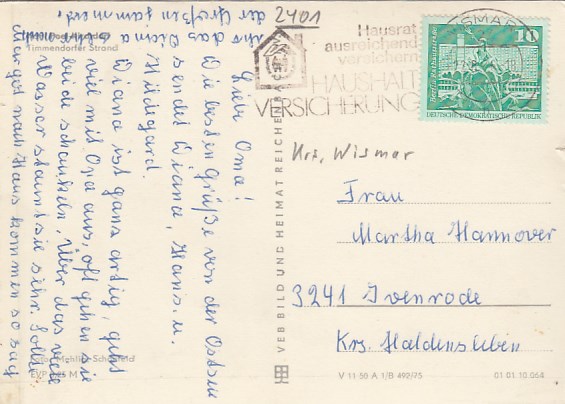 Liebe Oma!
Die besten Grüße von der Ostsee
sendet Diana, Hans. u.
Hildegard
Diana ist ganz artig, geht
viel mit Opa aus, oft gehen sie
beide schaukeln. Über das viele
Wasser staunt sie sehr. Sollte
Margot nach Haus kommen so sag
ihr das Diana
der Großen
Timmendorfer Strand
EVP
M
VEB BILD UND HEIMAT REICHENBACH
2401
Hausrat
ausreichend
versichern
HAUSHALT
VERSICHERUNG
WISMAR
10
DEUTSCHE DEMOKRATISCHE REPUBLIK
Krs. Wismar
Frau
Martha Hannover
3241 Ivenrode
Krs. Haldensleben
V 11 50 A 1/B 492/75
01 01 10 064